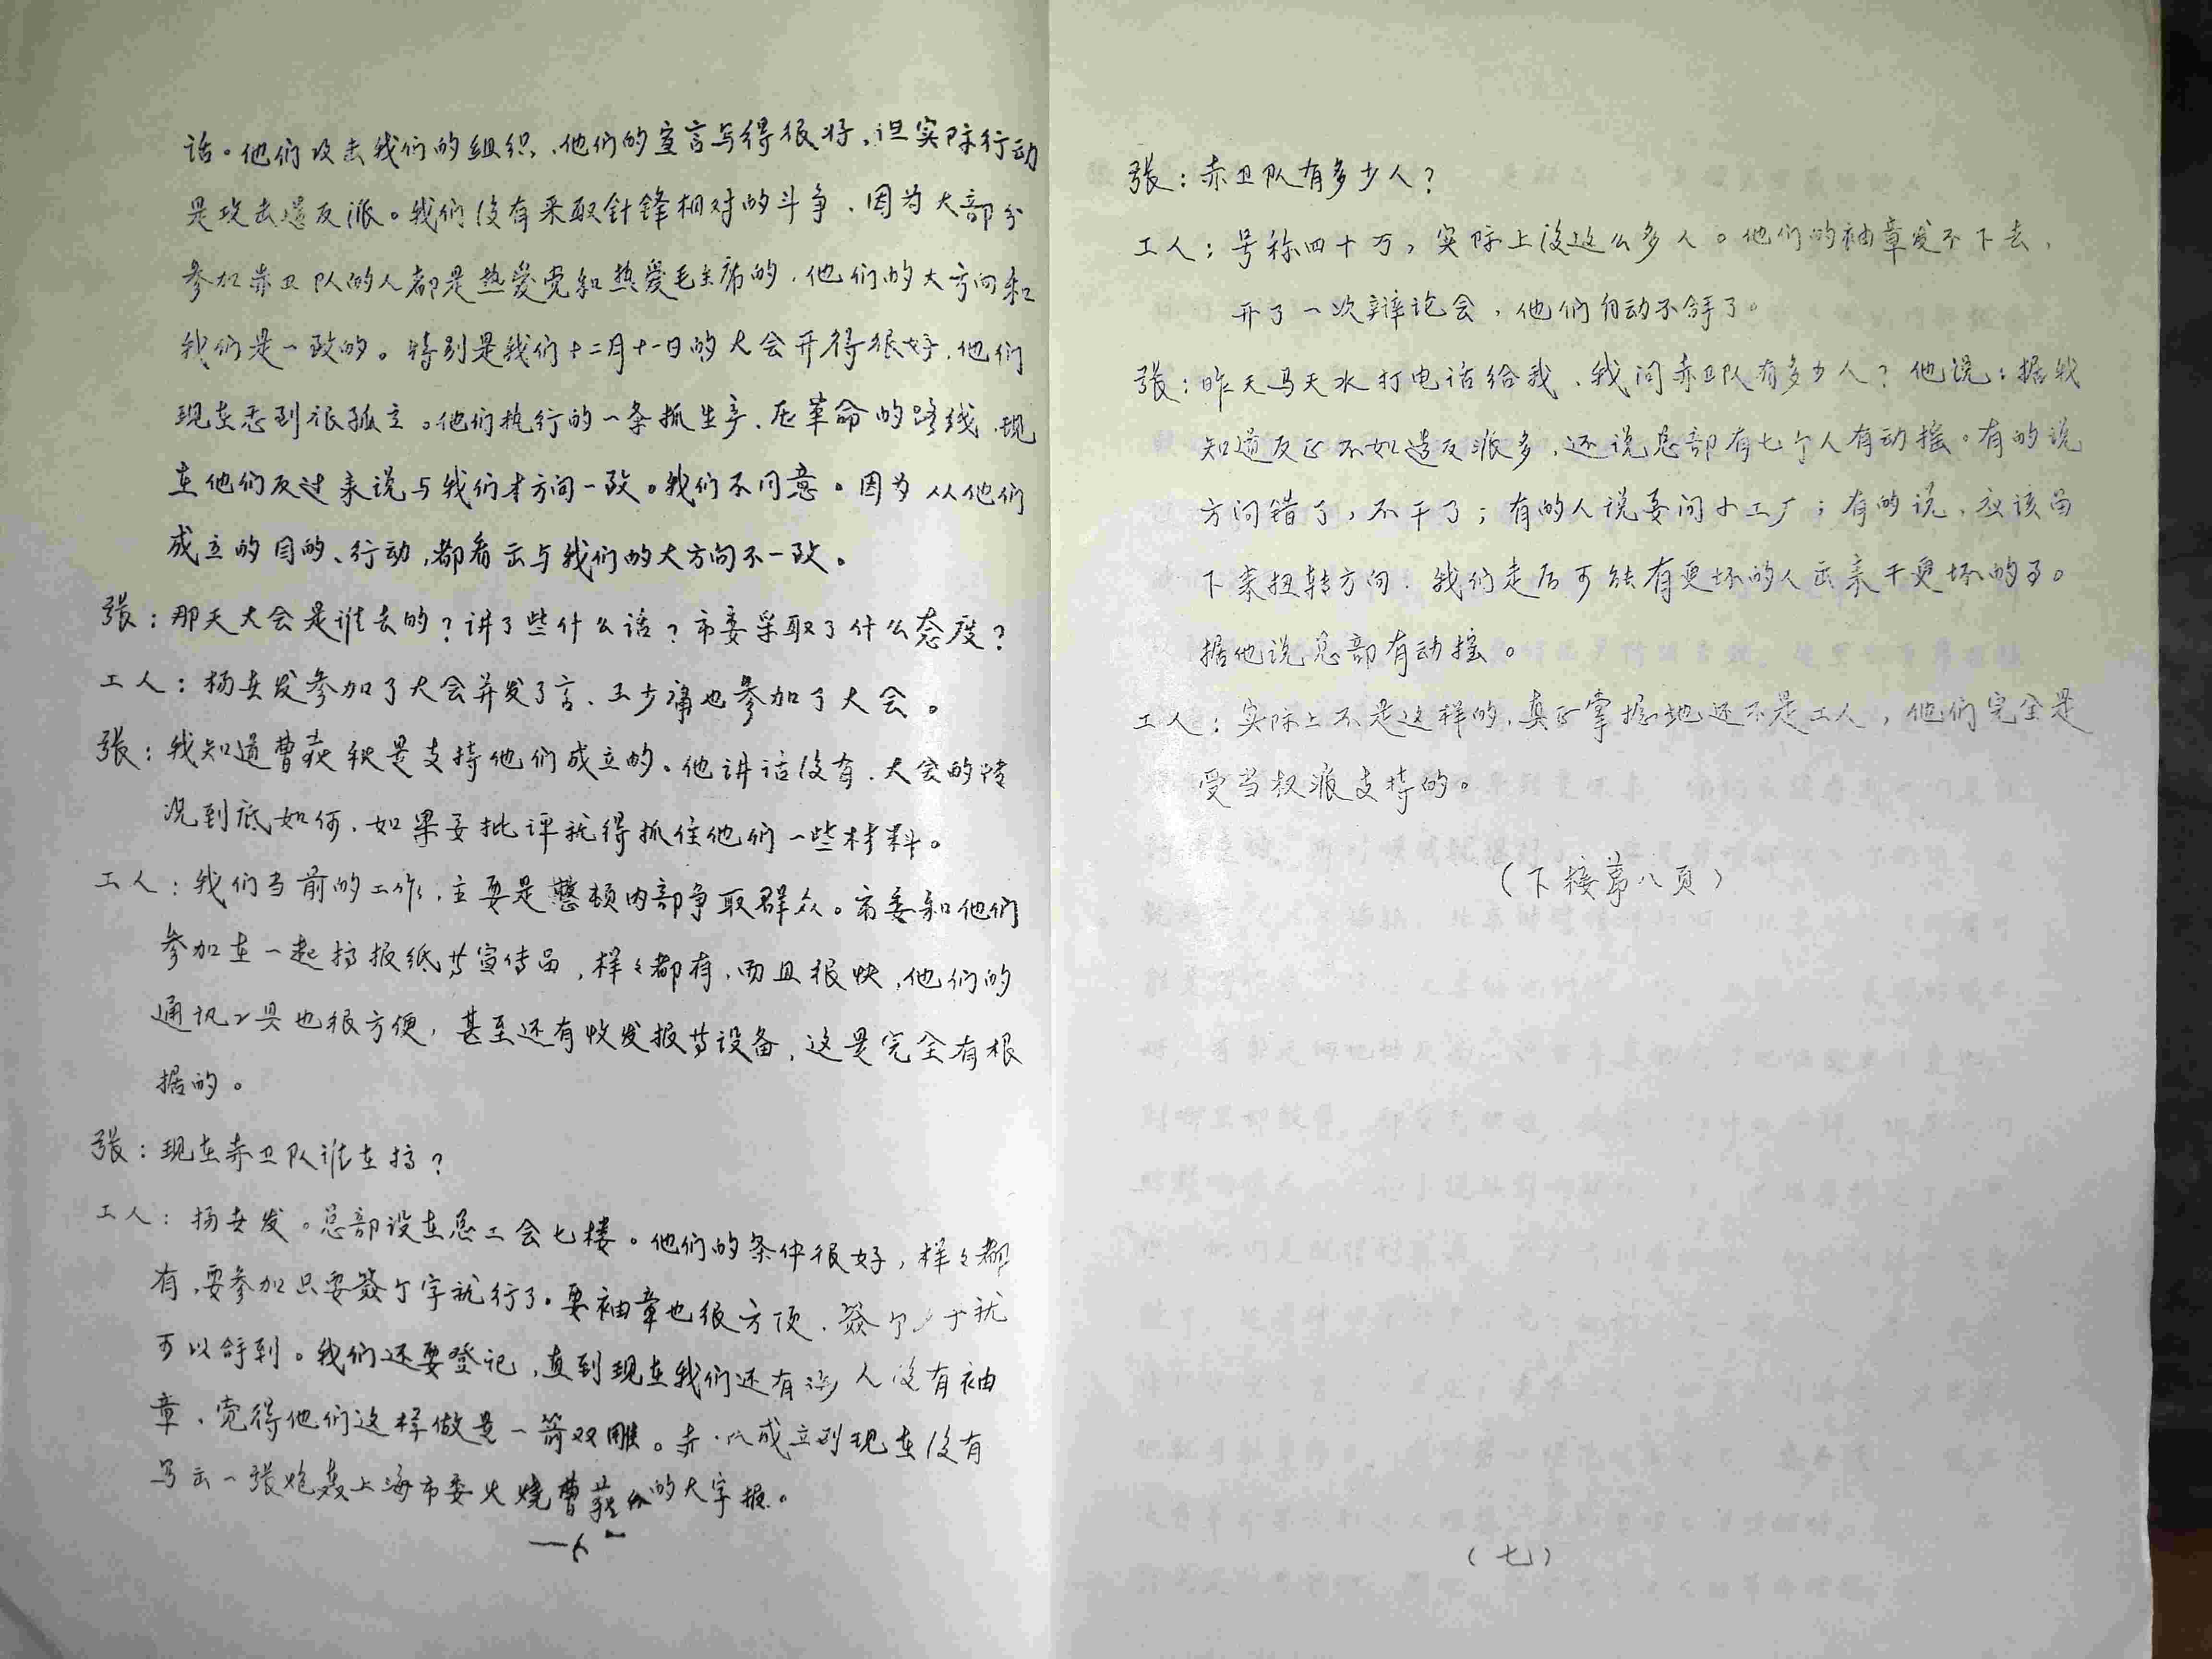 话。他们攻击我们的组织，他们的宣言写得很好，但实际行动
是攻击造反派。我们没有采取针锋相对的斗争，因为大部分
参加赤卫队的人都是热爱党和热爱毛主席的，他们的大方向和
我们是一致的。特别是我们十二月十一日的大会开得很好，他们
现在感到很孤立。他们执行的一条抓生产、压革命的路线，现
在他们反过来说与我们大方向一致。我们不同意。因为从他们
成立的目的、行动，都看出与我们的大方向不一致。
张：那天大会是谁去的？讲了些什么话？市委采取了什么态度？
工人：杨士发参加了大会并发了言、王少庸也参加了大会。
张：我知道曹荻秋是支持他们成立的。他讲话没有，大会的情
况到底如何，如果要批评就得抓住他们一些材料。
工人：我们当前的工作，主要是整顿内部争取群众。市委和他们
参加在一起搞报纸等宣传品，样々都有，而且很快，他们的
通讯工具也很方便，甚至还有收发报等设备，这是完全有根
据的。
张：现在赤卫队谁在搞？
工人：杨士发。总部设在总工会七楼。他们的条件很好，样々都
有，要参加只要签个字就行了。要袖章也很方便，签个字就
可以拿到。我们还要登记，直到现在我们还有 人没有袖
章、觉得他们这样做是一箭双雕。赤 队成立到现在没有
写出一张炮轰上海市委火烧曹荻秋的大字报。
一六一
张：赤卫队有多少人？
工人：号称四十万，实际上没这么多人。他们的袖章发不下去，
开了一次辩论会，他们自动不拿了。
张：昨天马天水打电话给我，我问赤卫队有多少人？他说：据我
知道反正不如造反派多，还说总部有七个人有动摇。有的说
方向错了，不干了；有的人说要回本工厂；有的说，应该留
下来扭转方向，我们走后可能有更坏的人出来干更坏的事。
据他说总部有动摇。
工人：实际上不是这样的，真正掌握地还不是工人，他们完全是
受当权派支持的。
（下接第八页）
（七）